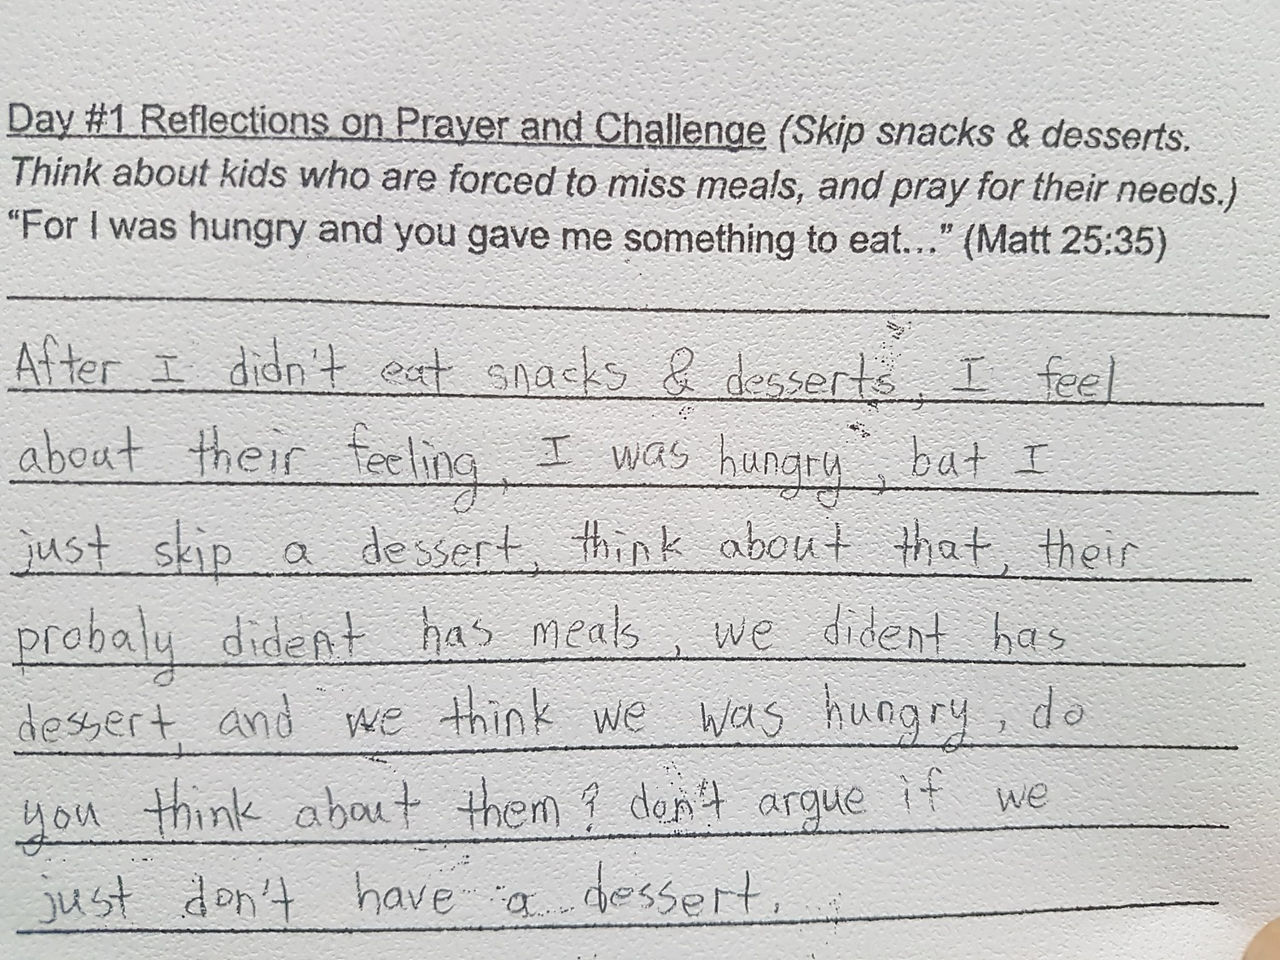 Day #1 Reflections on Prayer and Challenge (Skip snacks & desserts.
Think about kids who are forced to miss meals, and pray for their needs.)
“For I was hungry and you gave me something to eat...” (Matt 25:35)
After I didn't eat snacks & desserts, I feel
about their feeling, I was hungry, bat I
just skip a dessert, think about that, their
probaly dident has meals, we dident has
dessert, and we think we was hungry, do
you think about them? don't argue if we
just don't have a dessert.